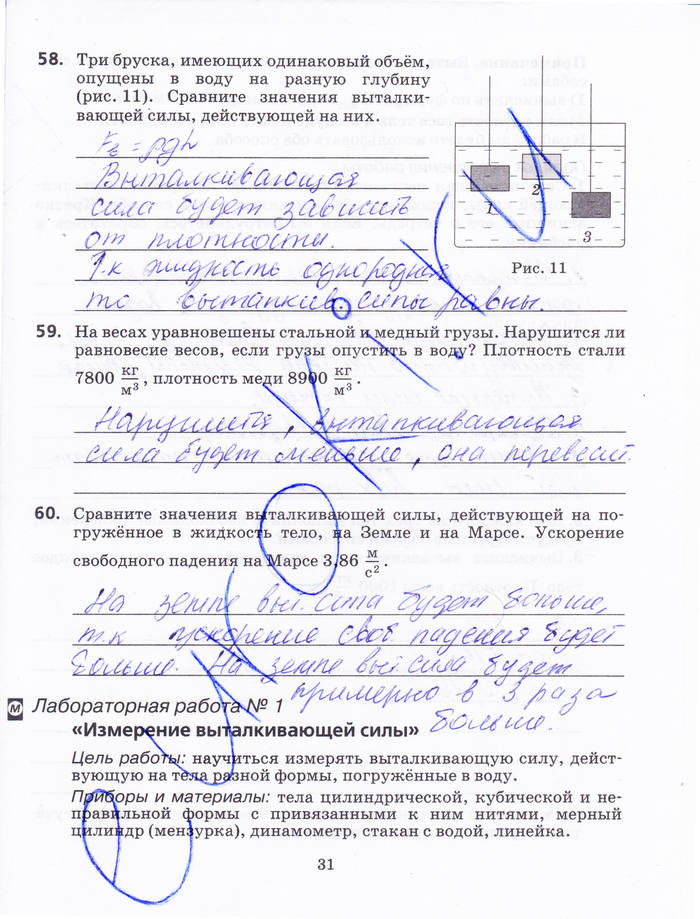 58. Три бруска, имеющих одинаковый объём,
опущены в воду на разную глубину
(рис. 11). Сравните значения выталки-
вающей силы, действующей на них.
1
2
3
Рис. 11
Выталкивающая
сила будет зависить
от плотности.
Т.к жидкость однородная
то выталкив. силы равны.
59. На весах уравновешены стальной и медный грузы. Нарушится ли
равновесие весов, если грузы опустить в воду? Плотность стали
7800 кг/м³, плотность меди 8900 кг/м³.
Нарушится, выталкивающая
сила будет меньше, она перевесит.
60. Сравните значения выталкивающей силы, действующей на по-
гружённое в жидкость тело, на Земле и на Марсе. Ускорение
свободного падения на Марсе 3,86 м/с².
На земле выт. сила будет больше,
т.к ускорение своб падения будет
больше. На земле выт сила будет
примерно в 3 раза
больше.
М Лабораторная работа № 1
«Измерение выталкивающей силы»
Цель работы: научиться измерять выталкивающую силу, дейст-
вующую на тела разной формы, погружённые в воду.
Приборы и материалы: тела цилиндрической, кубической и не-
правильной формы с привязанными к ним нитями, мерный
цилиндр (мензурка), динамометр, стакан с водой, линейка.
31